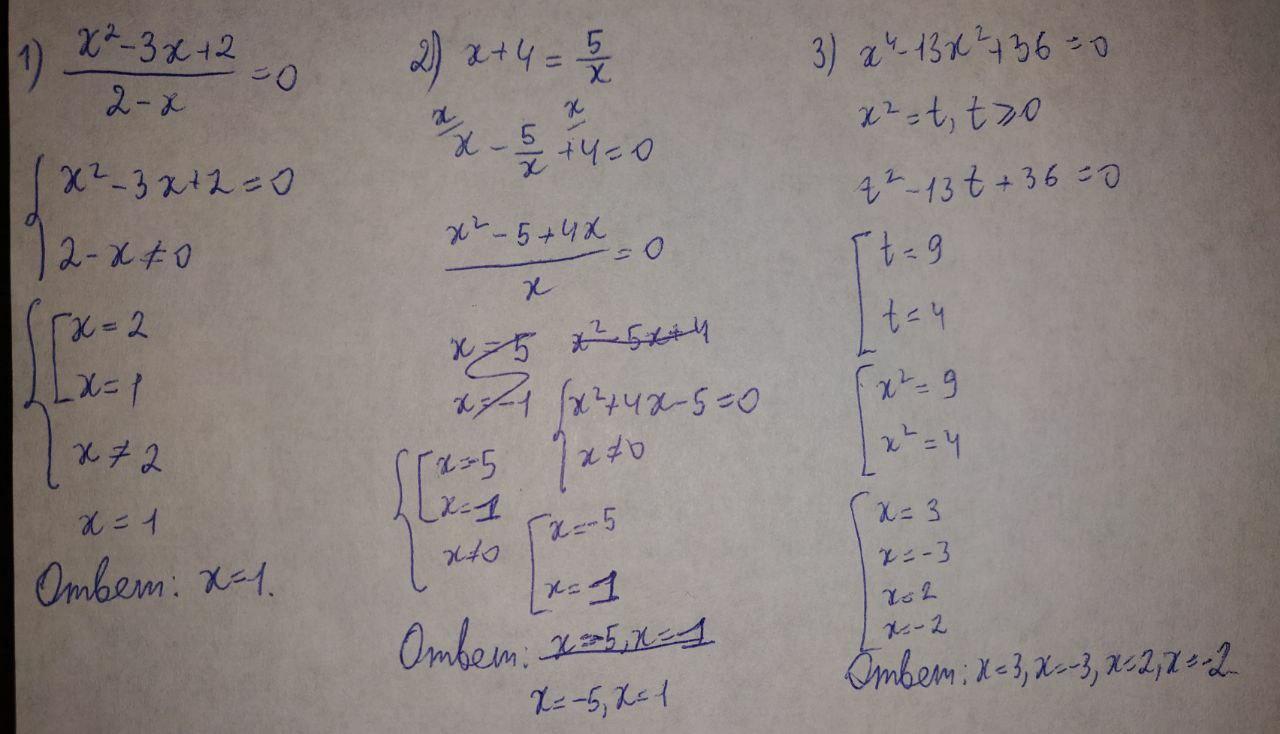 1) (x²-3x+2)/(2-x) = 0
{ x²-3x+2=0
2-x≠0
{ [ x=2
x=1
x≠2
x=1
Ответ: x=1.
2) x+4 = 5/x
x x
x - 5/x + 4 = 0
(x²-5+4x)/x = 0
x=5 x²-5x+4
x=-1 { x²+4x-5=0
x≠0
{ [ x=-5
x=1
x≠0
[ x=-5
x=1
Ответ: x=-5, x=-1
x=-5, x=1
3) x⁴-13x²+36=0
x²=t, t≥0
t²-13t+36=0
[ t=9
t=4
[ x²=9
x²=4
[ x=3
x=-3
x=2
x=-2
Ответ: x=3, x=-3, x=2, x=-2